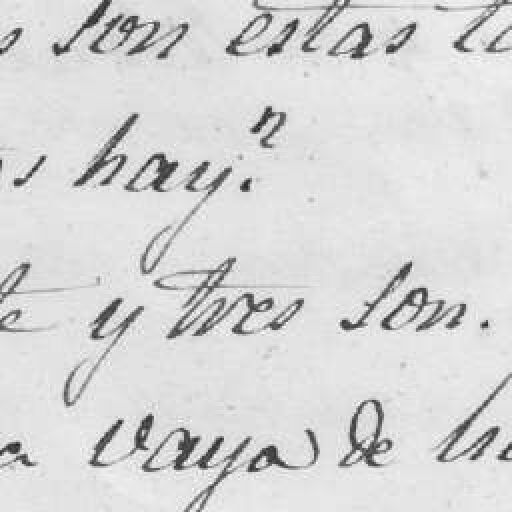 s son estas
s hay.ⁿ
te y tres son.
a vaya de